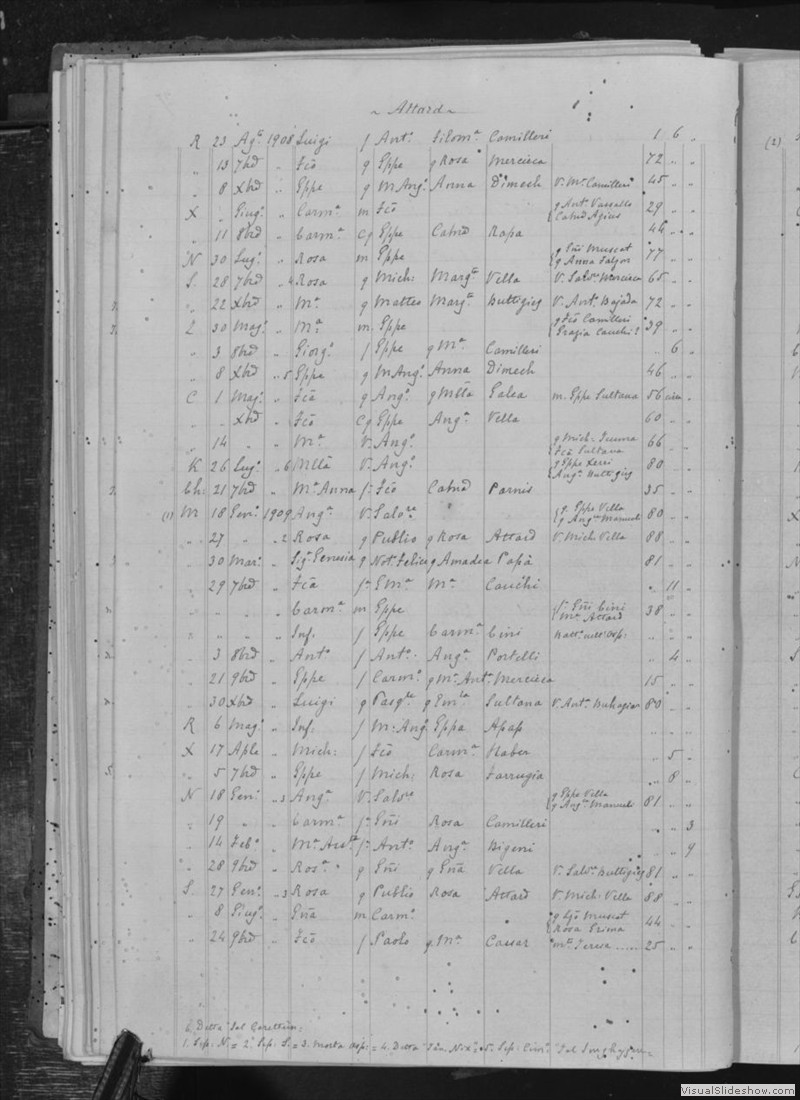 ~ Attard ~
R 23 Agᵒ 1908 Luigi f Antᵒ Filomᵃ Camilleri 1 6 "
" 13 7bre " Fcõ g Eppe g Rosa Mercieca 72 " "
" 8 Xbre " Eppe g M Angᵒ Anna Dimech V. Mᵃ Camilleri 45 " "
X " Giugᵒ " Carmᵃ m Fcõ g Antᵒ Vassallo 29 " "
Catnã Agius
" 11 8bre " Carmᵃ cg Eppe Catnã Rapa 46 " "
N 30 Lugᵒ " Rosa m Eppe g Gñi Muscat 77 " "
g Anna
S. 28 7bre " 4 Rosa g Mich: Margᵗᵃ Vella V. Salvᵉ Mercieca 65 " "
" 22 Xbre " Mᵃ g Matteo Margᵗᵃ Buttigieg V. Antᵒ Bajada 72 " "
Z 30 Magᵒ " Mᵃ m. Eppe g Fcõ Camilleri 39 " "
Grazia Cauchi?
" 3 8bre " Giorgᵒ f Eppe g Mᵃ Camilleri " 6 "
" 8 Xbre " 5 Eppe g M Angᵒ Anna Dimech 46 " "
C 1 Magᵒ " Fcã g Angᵒ g Mttã Galea m. Eppe Sultana 56 circa
" " Xbre " Fcõ cg Eppe Angᵃ Vella 60 " "
" 14 " " Mᵃ V. Angᵒ g Mich: 66 " "
Fcã Sultana
K 26 Lugᵒ " 6 Mttã V. Angᵒ g Eppe Xerri 80 " "
Angᵃ Buttigieg
Gh: 21 7bre " Mᵃ Anna f. Fcõ Catnã Parnis 35 " "
(1) M 18 Genᵒ 1909 Angᵃ V. Salvʳᵉ g. Eppe Vella 80 " "
g Angᵃ Manueli
" 27 " " 2 Rosa g Publio g Rosa Attard V. Mich. Vella 88 " "
" 30 Marᵒ " g Notᵒ Felice g Amadea Papà 81 " "
" 29 7bre " Fcã f. Emᵃ Mᵃ Cauchi " 11 "
" " " " Carmᵃ m Eppe f. Gñi Cini 38 " "
Mᵃ Attard
" " " " Inf. f Eppe Carmᵃ Cini " " "
" 3 8bre " Antᵒ f Antᵒ Angᵃ Portelli " 4 "
" 21 9bre " Eppe f Carmᵒ g Mᵃ Antᵃ Mercieca 15 " "
" 30 Xbre " Luigi g Pasqˡᵉ g Emˡᵃ Sultana V. Antᵃ 80 " "
R 6 Magᵒ " Inf. f M. Angᵒ Eppa Apap " " "
X 17 Aple " Mich: f Fcõ Carmᵃ Haber " 5 "
" 5 7bre " Eppe f Mich: Rosa Farrugia " 8 "
N 18 Genᵒ " 3 Angᵃ V. Salvʳᵉ g Eppe Vella 81 " "
g Angᵃ Manueli
" 19 " " Carmᵃ f. Gñi Rosa Camilleri " " 3
" 14 Febᵒ " f. Antᵒ Angᵃ Bigeni " " 9
" 28 9bre " Rosᵃ g Gñi g Gñã Vella V. Salvᵉ Buttigieg 81 " "
S. 27 Genᵒ " 3 Rosa g Publio Rosa Attard V. Mich: Vella 88 " "
" 8 Giugᵒ " Gñã m Carmᵒ Muscat 44 " "
Rosa Grima
" 24 9bre " Fcõ f Paolo g Mᵃ Cassar mᵗᵒ Teresa ...... 25 " "
6. Detta
1. Sep: N: = 2. Sep: S: = 3. Morta Osp: = 4. Detta
VisualSlideshow.com